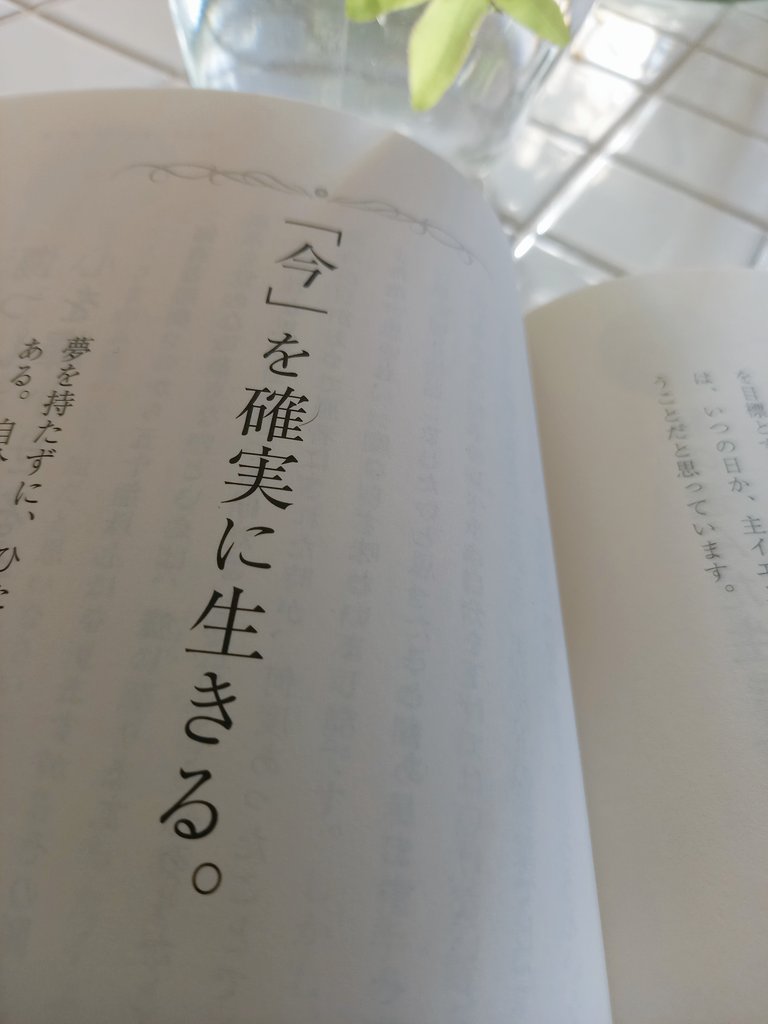 を目標とす
は、いつの日か、主イエ
うことだと思っています。
「今」を確実に生きる。
夢を持たずに、ひ
ある。自